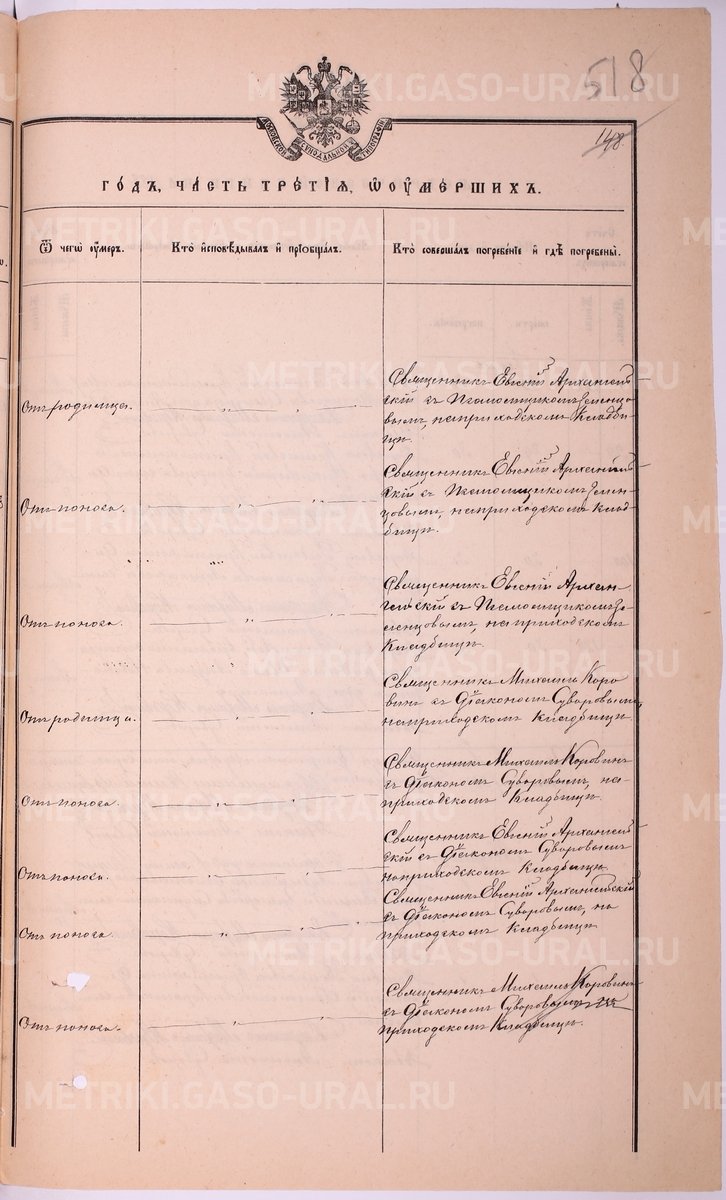 518
148.
МОСКОВСКОЙ СѴНОДАЛЬНОЙ ТИПОГРАФІИ
ГО́ДЪ, ЧА́СТЬ ТРЕ́ТІЯ, Ѿ ОУ҆МЕ́РШИХЪ.
Ѿ чегѡ̀ оу҆́меръ.
Кто̀ и҆сповѣ́дывалъ и҆ прїѡбща́лъ.
Кто̀ соверша́лъ погребе́нїе и҆ гдѣ̀ погребены̀.
Отъ родимца.
Священникъ Евгеній Архангель-
скій съ Псаломщикомъ Зеленцо-
вымъ, на приходскомъ кладби-
щѣ.
Отъ поноса.
Священникъ Евгеній Архангель-
скій съ Псаломщикомъ Зелен-
цовымъ, на приходскомъ клад-
бищѣ.
Отъ поноса.
Священникъ Евгеній Архан-
гельскій съ Псаломщикомъ Зе-
ленцовымъ, на приходскомъ
кладбищѣ.
Отъ родимца.
Священникъ Михаилъ Коро
винъ съ Діакономъ Суворовымъ,
на приходскомъ кладбищѣ.
Отъ поноса.
Священникъ Михаилъ Коровинъ
съ Діакономъ Суворовымъ, на-
приходскомъ кладбищѣ.
Отъ поноса.
Священникъ Евгеній Архангель-
скій съ Діакономъ Суворовымъ
на приходскомъ кладбищѣ.
Отъ поноса.
Священникъ Евгеній Архангельскій
съ Діакономъ Суворовымъ, на
приходскомъ кладбищѣ.
Отъ поноса.
Священникъ Михаилъ Коровинъ
съ Діакономъ Суворовымъ на
приходскомъ кладбищѣ.
METRIKI.GASO-URAL.RU